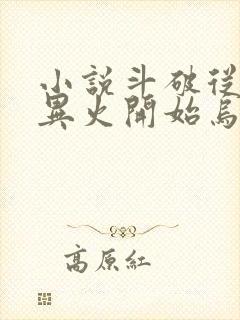 小說斗破從
異火開始烏
高原紅